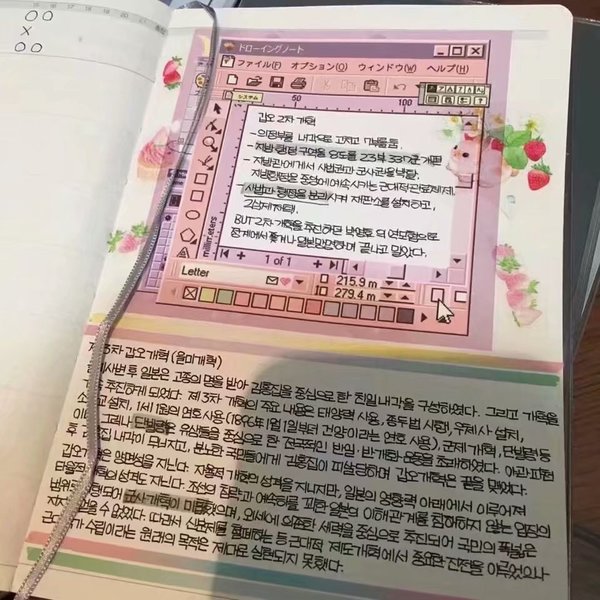 15 16 17 18 19 20
ドローイングノート
ファイル(F) オプション(O) ウィンドウ(W) ヘルプ(H)
システム
50 100
갑오 2차 개혁
- 의정부를 내각으로 고치고 7부를 둠.
- 지방 행정 구역을 8도를 23부 337군 개편
- 지방관에게서 사법권과 군사권을 박탈.
지방행정을 중앙에 예속시키는 근대적 관료체제.
사법과 행정을 분리시켜 재판소를 설치하고,
2심제 채택.
BUT 2차 개혁을 추진하던 박영효 의 역모혐으로
정계에서 쫓겨나 일본망명하며 끝나고 말았다.
millimeters
1 of 1
Letter
215.9 m
279.4 m
제3차 갑오개혁 (을미개혁)
사변 후 일본은 고종의 명을 받아 김홍집을 중심으로 한 친일내각을 구성하였다. 그리고 개혁을
추진하게 되었다. 제 3차 개혁의 주요 내용은 태양력 사용, 종두법 시행, 우체사 설치,
소학교 설치, 1세 1원의 연호사용 (1896년 1월 1일부터 건양이라는 연호 사용), 군제 개혁, 단발령 등
이다. 그러나 단발령은 유생들을 중심으로 한 전국적인 반일·반개화 운동을 초래하였다. 아관파천
후 친일 내각이 무너지고, 분노한 국민들에게 김홍집이 피살당하며 갑오개혁은 끝을 맺었다.
갑오개혁은 양면성을 지닌다. 자율적 개혁의 성격을 지니지만, 일본의 영향력 아래에서 이루어져
타율적 개혁의 성격도 지닌다. 조선의 침략과 예속화를 꾀한 일본의 이해관계를 침해하지 않는 일정의
범위로 되어 군사 개혁이 미흡했으며, 외세에 의존한 세력을 중심으로 추진되어 국민의 폭넓은
지지를 받을 수 없었다. 따라서 신분제를 철폐하는 등 근대적 제도개혁에서 중요한 진전을 이루었으나
근대 국가 수립이라는 원래의 목적은 제대로 실현되지 못했다.